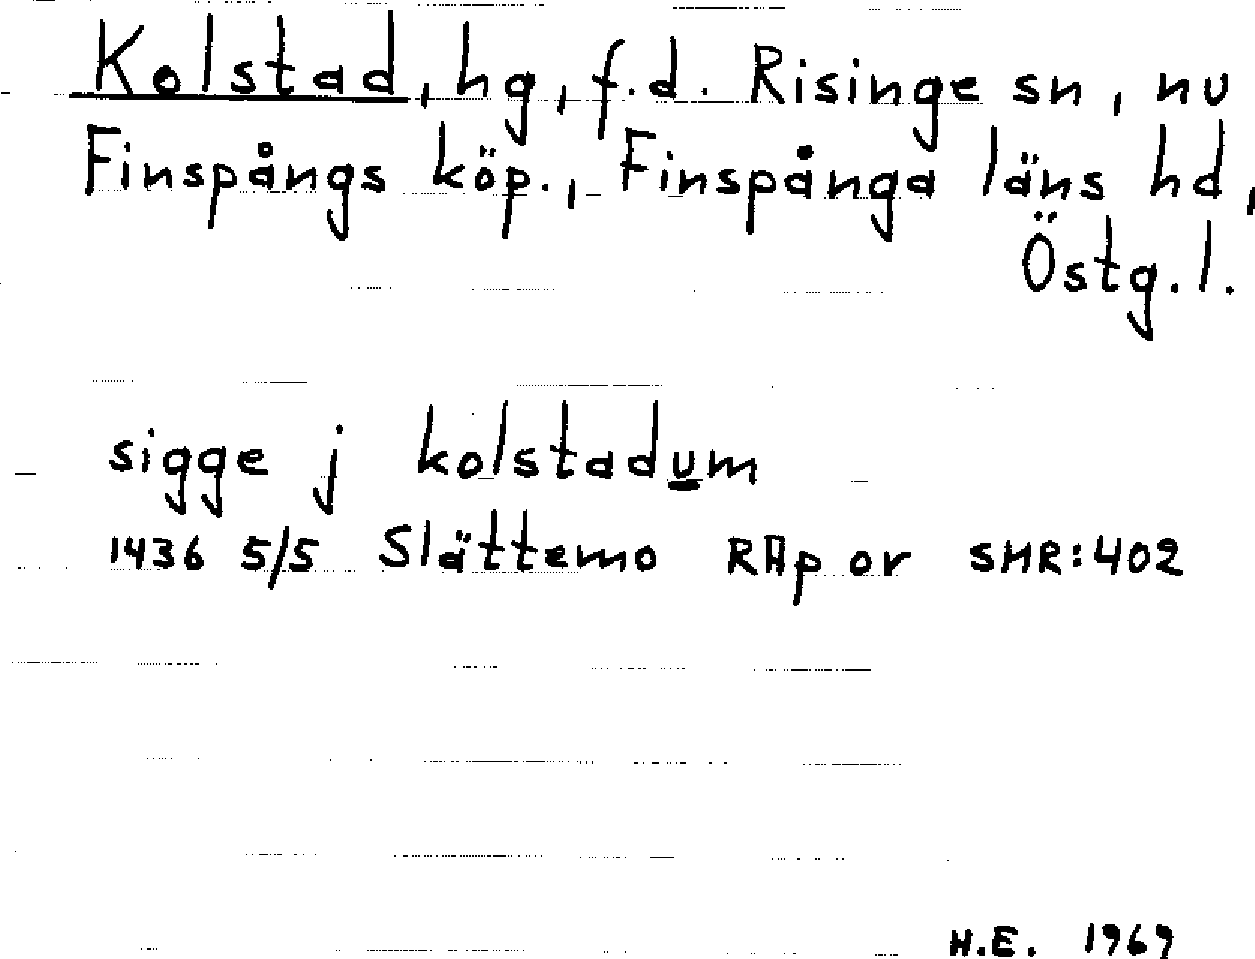 Kolstad, hg, f.d. Risinge sn, nu
Finspångs köp., Finspånga läns hd,
Östg.l.
sigge j kolstadum
1436 5/5 Slättemo RAp or SMR:402
H.E. 1969